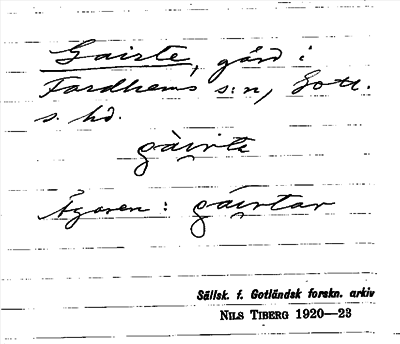 Gairte, gård i
Fardhems s:n, Gotl.
s. hd.
gàirte
Ägaren: gáirtar
Sällsk. f. Gotländsk forskn. arkiv
NILS TIBERG 1920—23